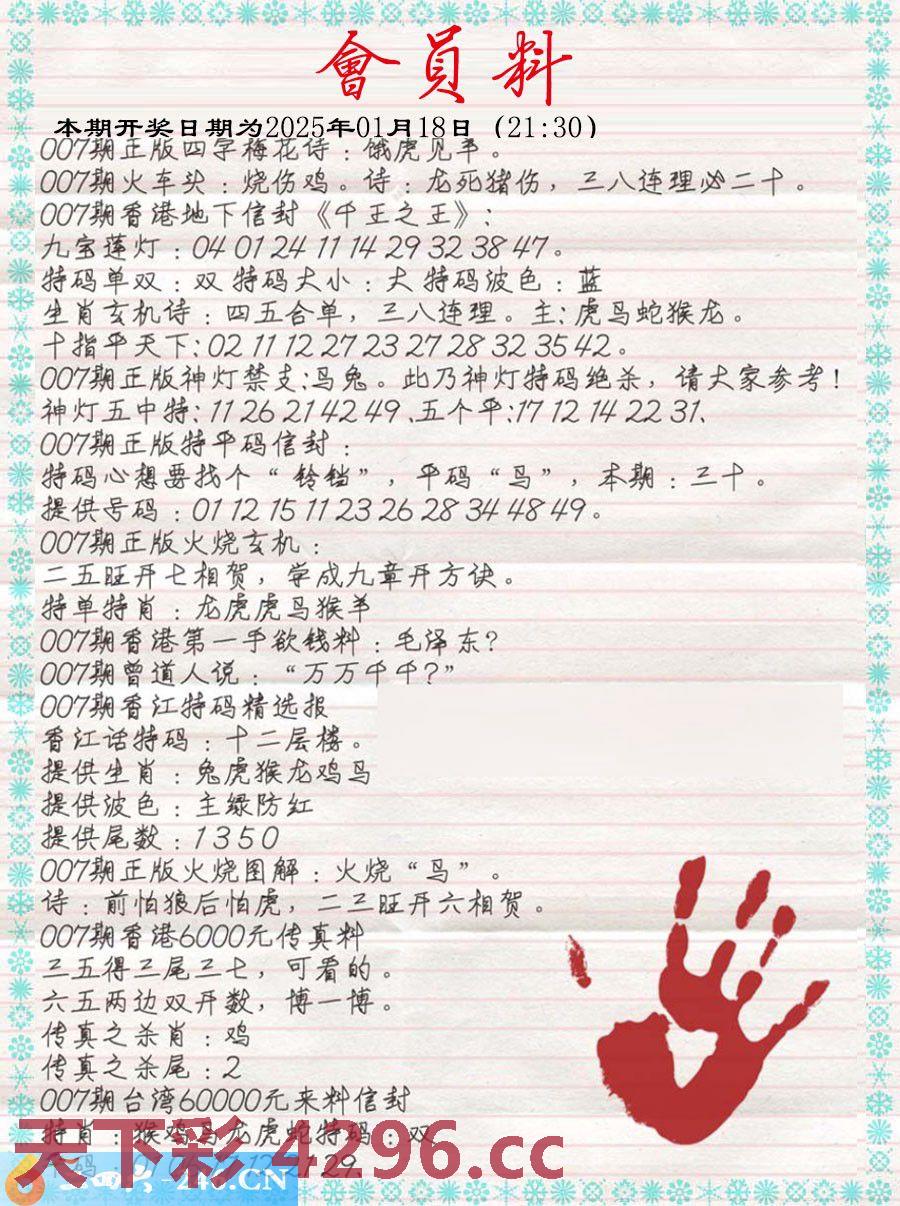 會員料
本期开奖日期为2025年01月18日（21:30）
007期正版四字梅花诗：饿虎见羊。
007期火车头：烧伤鸡。诗：龙死猪伤，三八连理必二十。
007期香港地下信封《千王之王》：
九宝莲灯：04 01 24 11 14 29 32 38 47。
特码单双：双 特码大小：大 特码波色：蓝
生肖玄机诗：四五合单，三八连理。主：虎马蛇猴龙。
十指平天下：02 11 12 27 23 27 28 32 35 42。
007期正版神灯禁支：马兔。此乃神灯特码绝杀，请大家参考！
神灯五中特：11 26 21 42 49、五个平：17 12 14 22 31、
007期正版特平码信封：
特码心想要找个“铃铛”，平码“马”，本期：三十。
提供号码：01 12 15 11 23 26 28 34 48 49。
007期正版火烧玄机：
二五旺开七相贺，学成九章开方诀。
特单特肖：龙虎虎马猴羊
007期香港第一手欲钱料：毛泽东？
007期曾道人说：“万万千千？”
007期香江特码精选报
香江话特码：十二层楼。
提供生肖：兔虎猴龙鸡马
提供波色：主绿防红
提供尾数：1 3 5 0
007期正版火烧图解：火烧“马”。
诗：前怕狼后怕虎，二三旺开六相贺。
007期香港6000元传真料
三五得三尾三七，可看的。
六五两边双开数，博一博。
传真之杀肖：鸡
传真之杀尾：2
007期台湾60000元来料信封
特肖：猴鸡马龙虎蛇特码：双
天下彩 4296.cc
246.CN